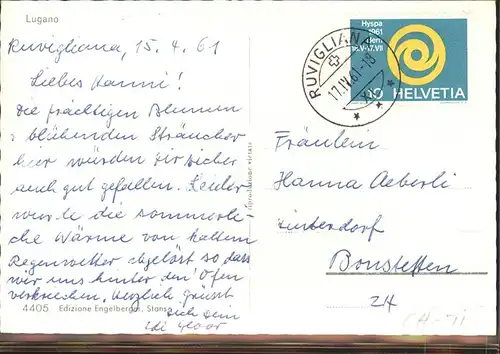 Lugano
Ruvigliana, 15. 4. 61
Liebes Hanni!
Die prächtigen Blumen
blühenden Sträucher
hier würden dir sicher
auch gut gefallen. Leider
wurde die sommerli-
che Wärme von kaltem
Regenwetter abgelöst so dass
wir uns hinter den Ofen
verkriechen. Herzlich grüsst
dich dein
4405 Edizione Engelberger, Stans
Hyspa
1961
Bern
17.VII
HELVETIA
RUVIGLIANA
17.IV.61-18
Fräulein
Hanna Aeberli
Bonstetten
24